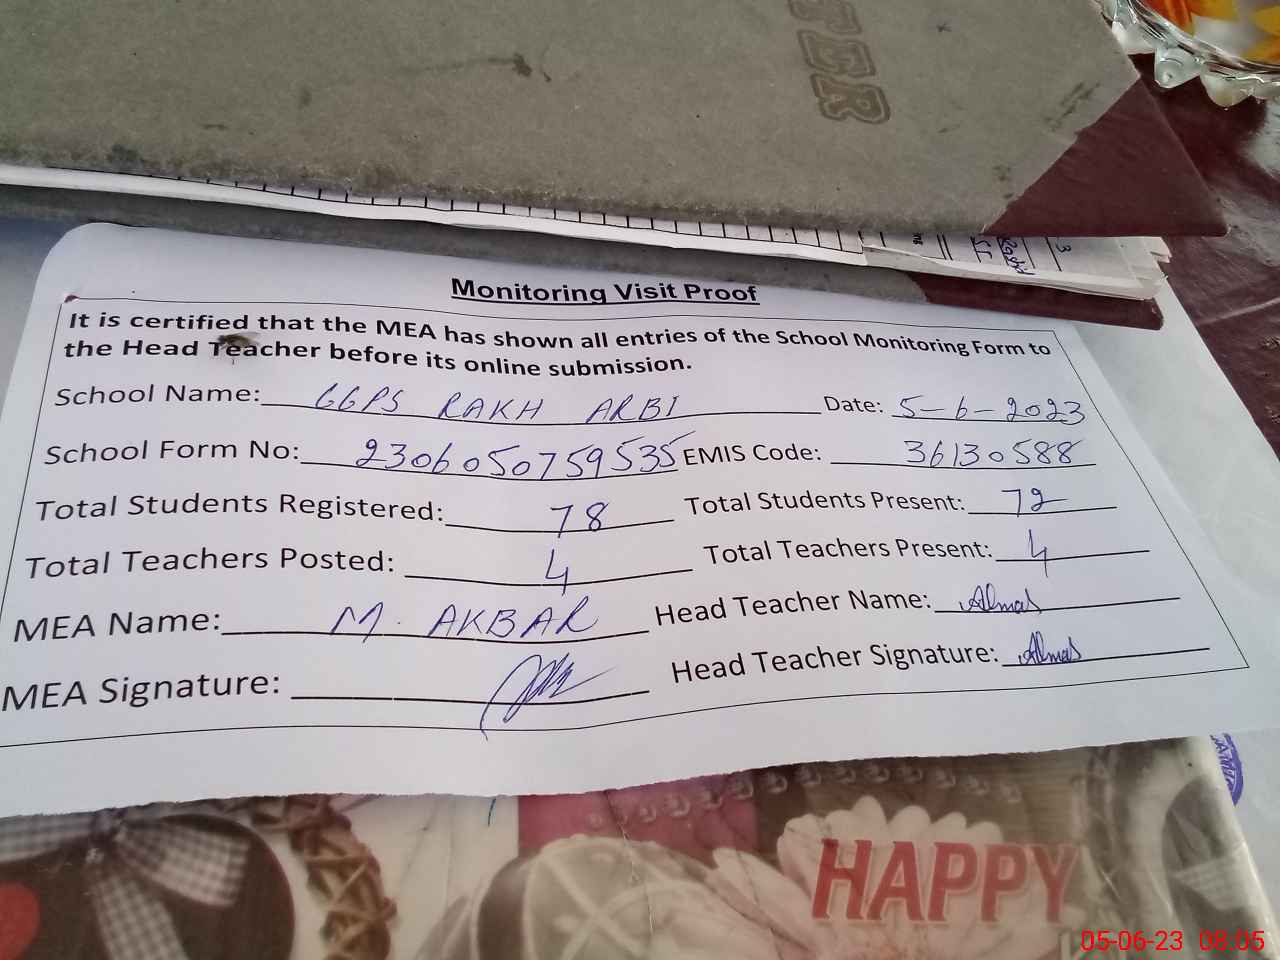 TER
Monitoring Visit Proof
It is certified that the MEA has shown all entries of the School Monitoring Form to
the Head Teacher before its online submission.
School Name: GGPS RAKH ARBI Date: 5-6-2023
School Form No: 2306050759535 EMIS Code: 36130588
Total Students Registered: 78 Total Students Present: 72
Total Teachers Posted: 4 Total Teachers Present: 4
MEA Name: M. AKBAR Head Teacher Name: Almas
MEA Signature: Head Teacher Signature: Almas
HAPPY
05-06-23 08:05